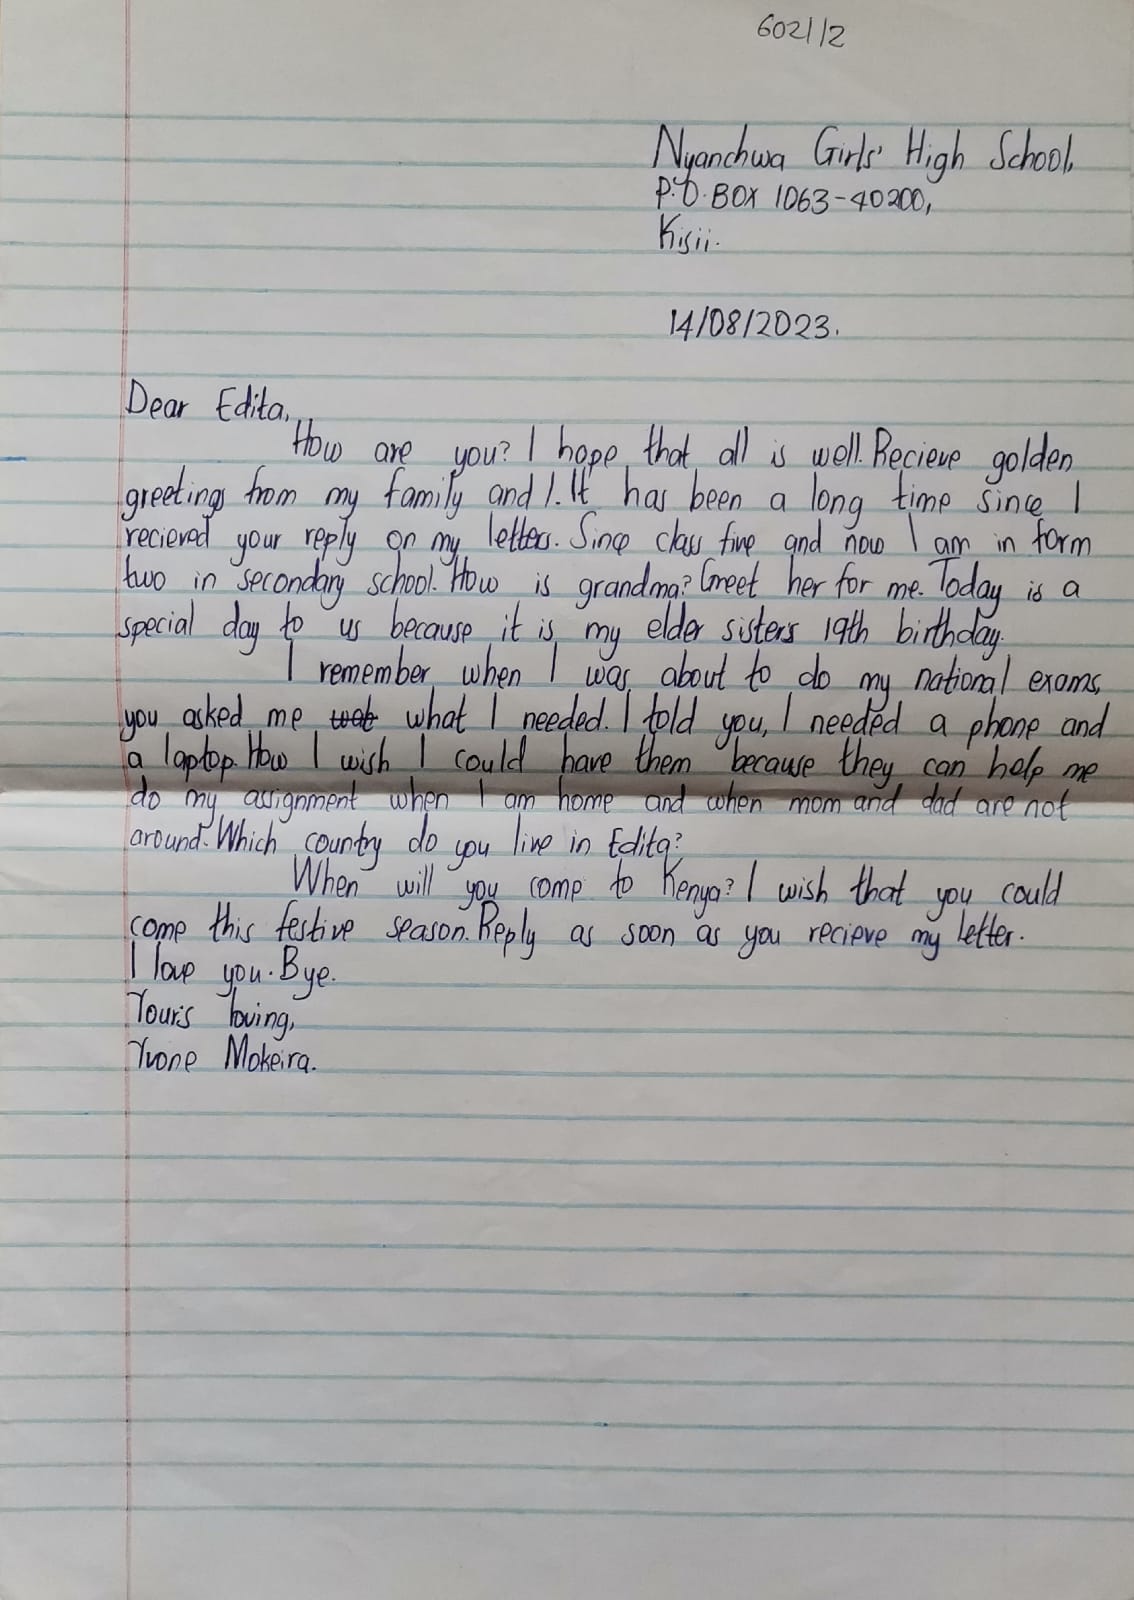 6021/2
Nyanchwa Girls' High School,
P.O. BOX 1063-40200,
Kisii.
14/08/2023.
Dear Edita,
How are you? I hope that all is well. Recieve golden
greetings from my family and I. It has been a long time since I
recieved your reply on my letters. Since class five and now I am in form
two in secondary school. How is grandma? Greet her for me. Today is a
special day to us because it is my elder sister's 19th birthday.
I remember when I was about to do my national exams,
you asked me what I needed. I told you, I needed a phone and
a laptop. How I wish I could have them because they can help me
do my assignment when I am home and when mom and dad are not
around. Which country do you live in Edita?
When will you come to Kenya? I wish that you could
come this festive season. Reply as soon as you recieve my letter.
I love you. Bye.
Your's loving,
Yvone Mokeira.